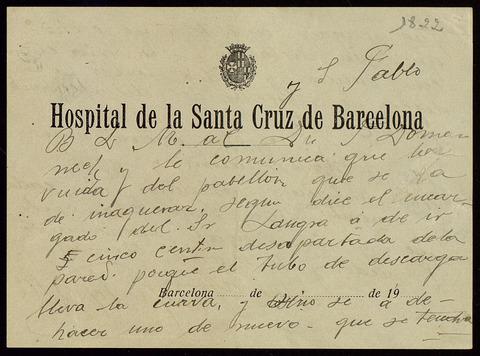 1822
y S. Pablo
Hospital de la Santa Cruz de Barcelona
B L M. al Dr. Domenech y le comunica que la
ruida del pabellón que se ha
de inaguerar, segun dice el encargado
del Sr Langra á de ir
5 cinco centm desapartada de la
pared porque el tubo de descarga
Barcelona de de 19
lleva la curva, y sino se á de
hacer uno de nuevo que se tendra